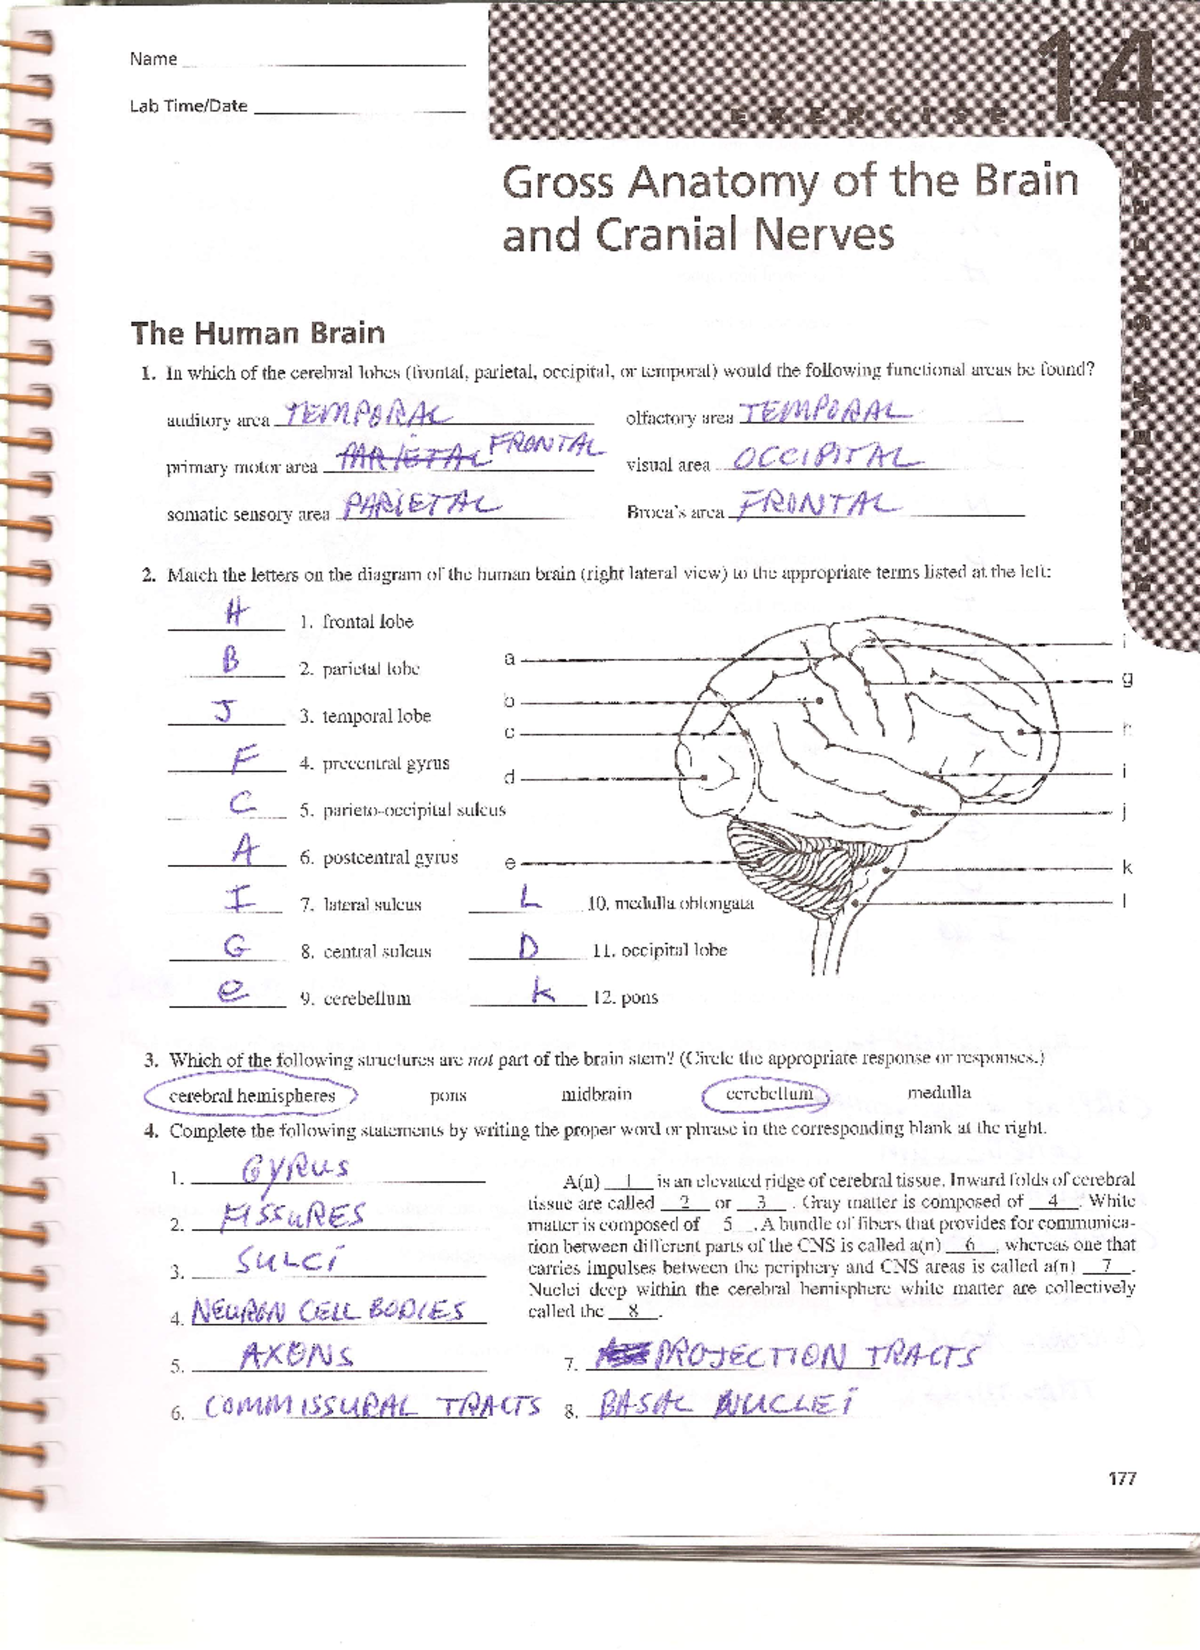 Name
14
Lab Time/Date
EXERCISE
REVIEW SHEET
Gross Anatomy of the Brain
and Cranial Nerves
The Human Brain
1. In which of the cerebral lobes (frontal, parietal, occipital, or temporal) would the following functional areas be found?
auditory area TEMPORAL olfactory area TEMPORAL
primary motor area PARIETAL FRONTAL visual area OCCIPITAL
somatic sensory area PARIETAL Broca's area FRONTAL
2. Match the letters on the diagram of the human brain (right lateral view) to the appropriate terms listed at the left:
H 1. frontal lobe
B 2. parietal lobe
J 3. temporal lobe
F 4. precentral gyrus
C 5. parieto-occipital sulcus
A 6. postcentral gyrus
I 7. lateral sulcus L 10. medulla oblongata
G 8. central sulcus D 11. occipital lobe
e 9. cerebellum k 12. pons
a
b
c
d
e
g
h
i
j
k
l
3. Which of the following structures are not part of the brain stem? (Circle the appropriate response or responses.)
cerebral hemispheres pons midbrain cerebellum medulla
4. Complete the following statements by writing the proper word or phrase in the corresponding blank at the right.
1. GYRUS
2. FISSURES
3. SULCI
4. NEURON CELL BODIES
5. AXONS
6. COMMISSURAL TRACTS
A(n) 1 is an elevated ridge of cerebral tissue. Inward folds of cerebral
tissue are called 2 or 3. Gray matter is composed of 4. White
matter is composed of 5. A bundle of fibers that provides for communica-
tion between different parts of the CNS is called a(n) 6, whereas one that
carries impulses between the periphery and CNS areas is called a(n) 7.
Nuclei deep within the cerebral hemisphere white matter are collectively
called the 8.
7. PROJECTION TRACTS
8. BASAL NUCLEI
177